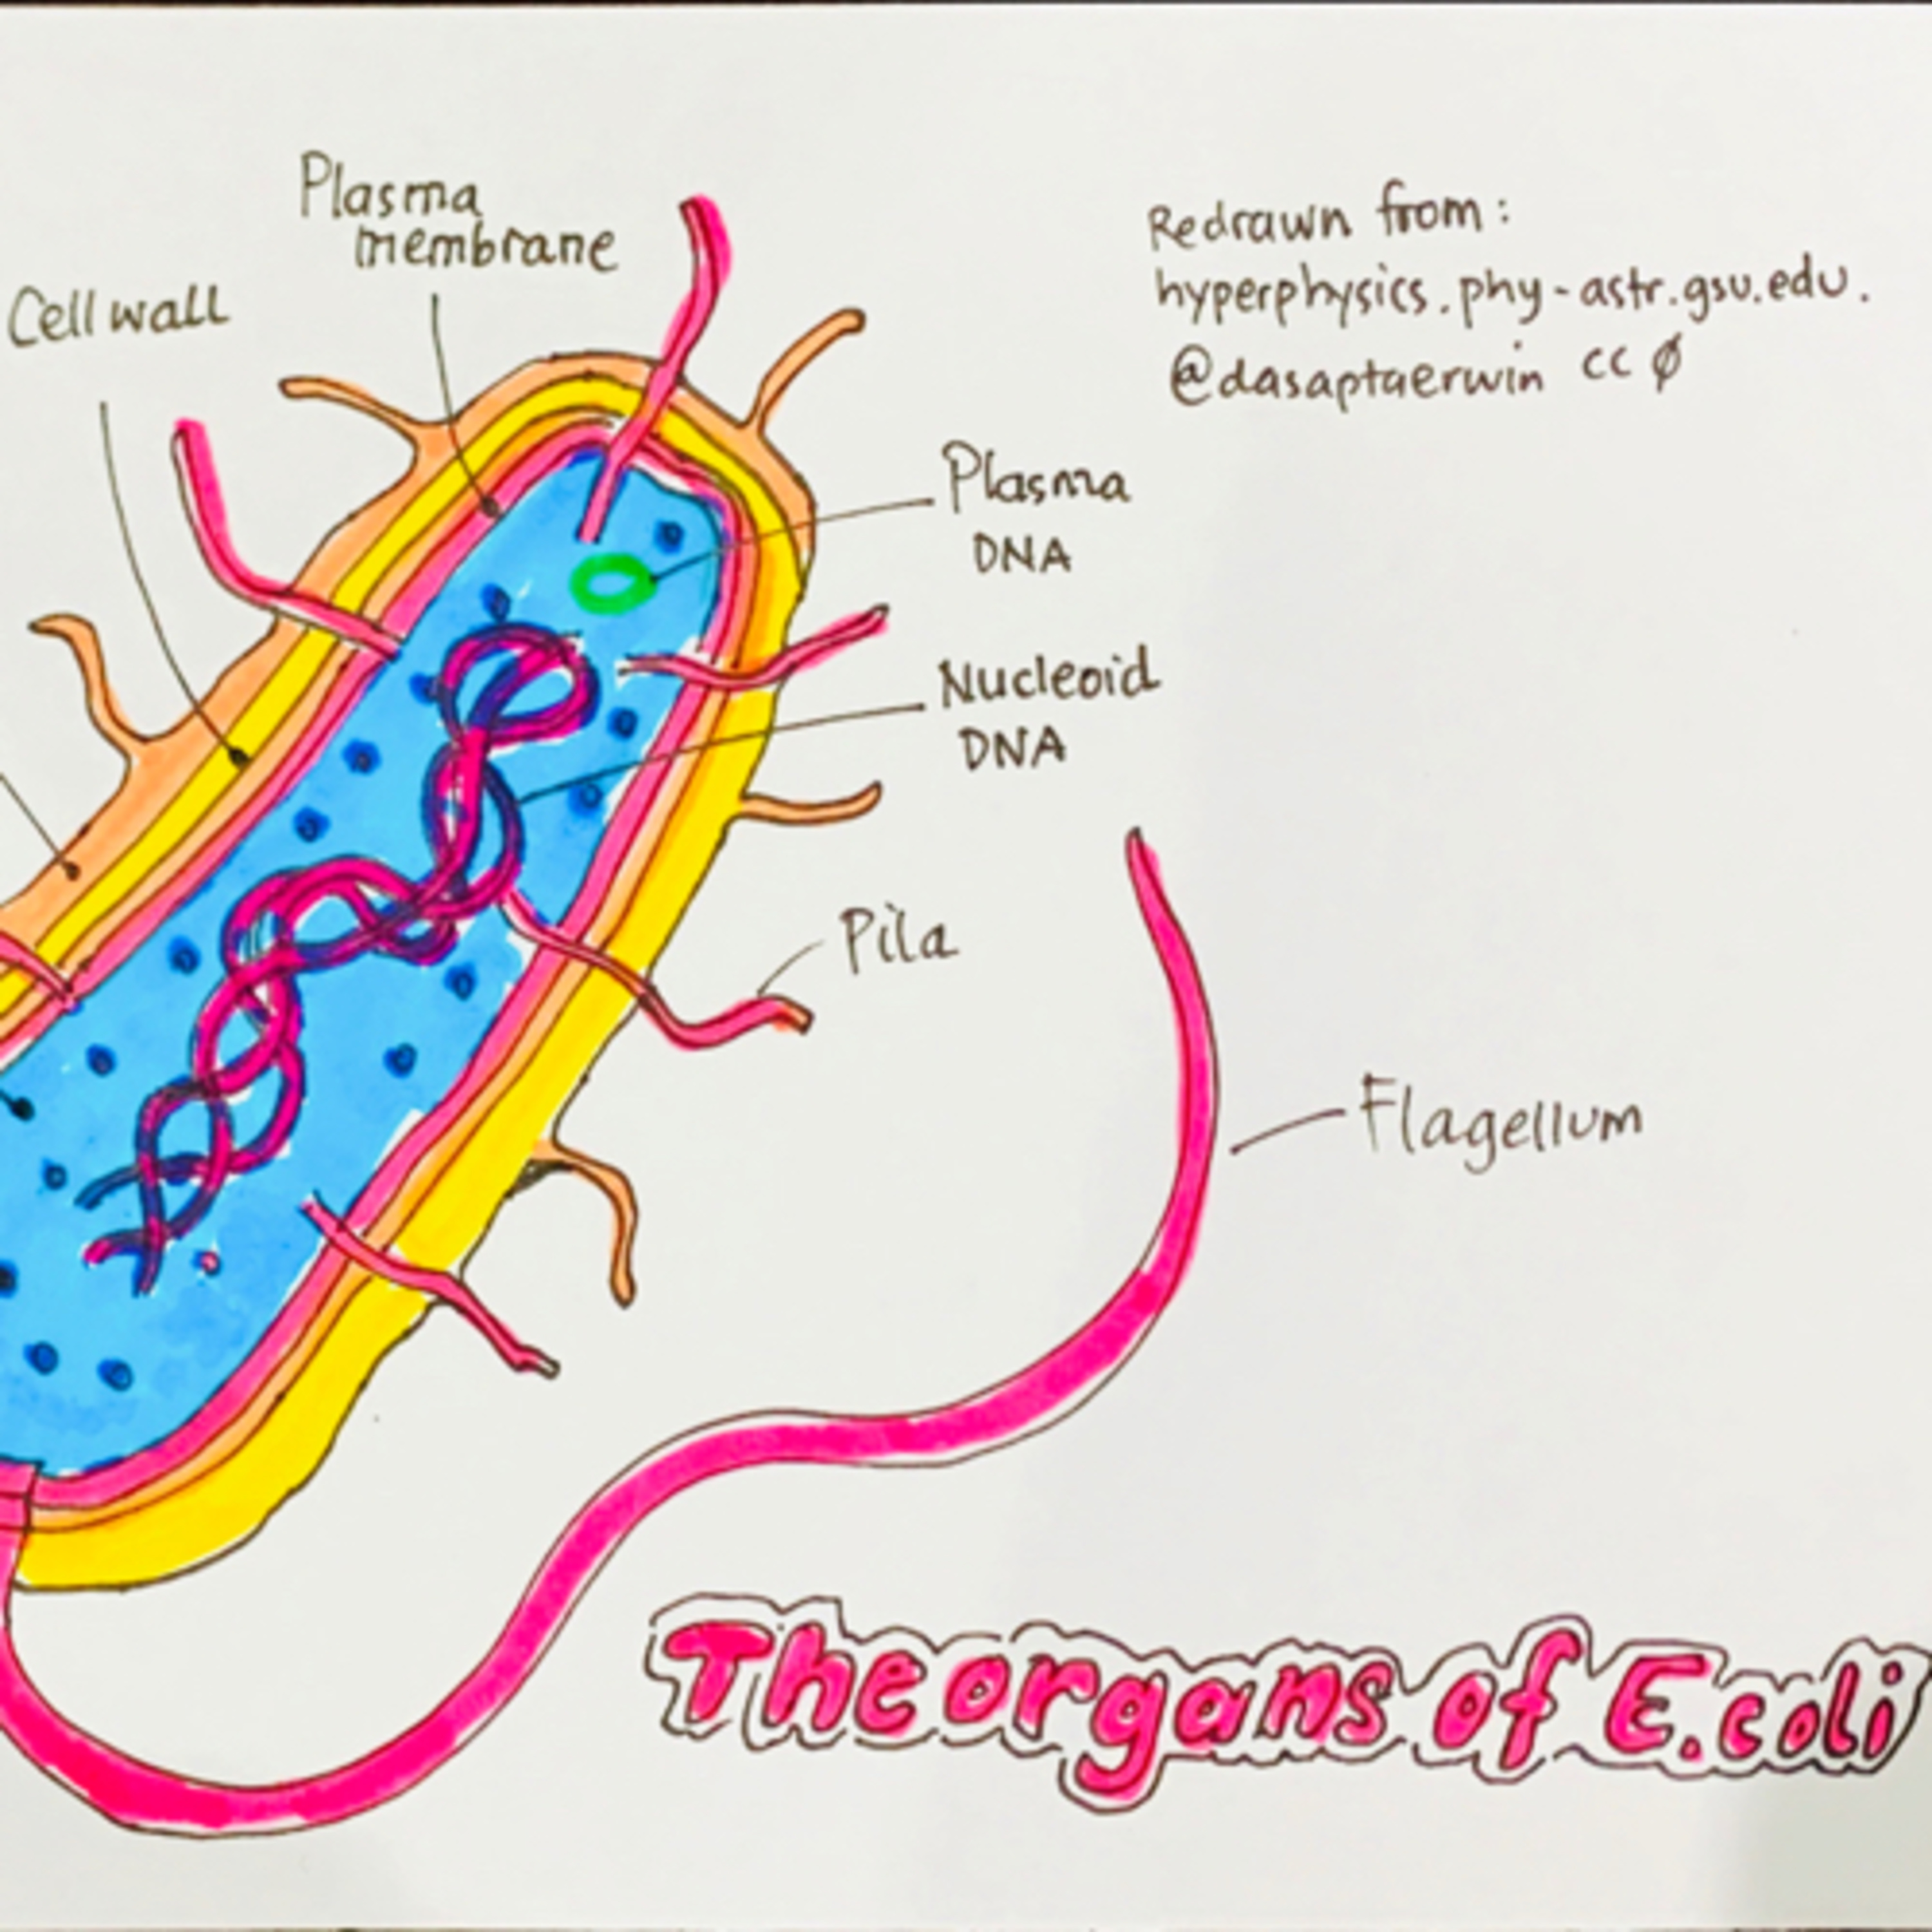 Plasma
membrane
Cell wall
Redrawn from:
hyperphysics.phy-astr.gsu.edu.
@dasaptaerwin cc ∅
Plasma
DNA
Nucleoid
DNA
Pila
Flagellum
The organs of E.coli